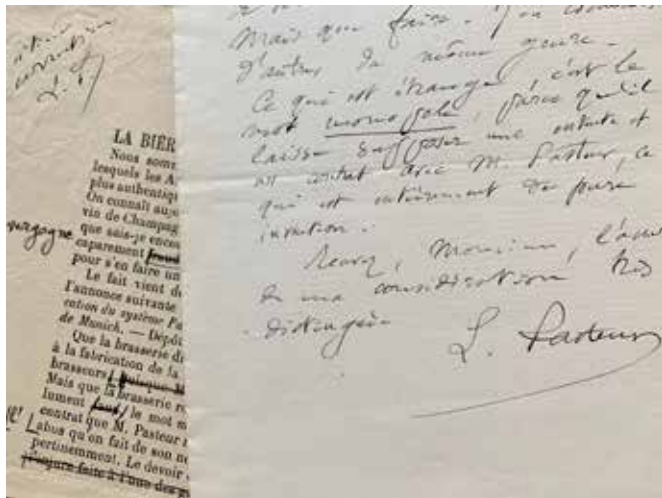 L. P.
LA BIÈR
Nous somm
lesquels les A
plus authentiq
On connaît aujo
vin de Champag
que sais-je encor
vergogne
caparement
pour s'en faire un
Le fait vient d
l'annonce suivante
cation du système Pa
de Munich. — Dépôt
Que la brasserie di
à la fabrication de la
brasseurs Puisque M
Mais que la brasserie re
lument faux / le mot m
contrat que M. Pasteur n
l'abus qu'on fait de son no
pertinemment. Le devoir
l'injure faite à l'une des g
Mais que faire.
d'autres du même genre.
Ce qui est étrange, c'est le
mot monopole, parce qu'il
laisse supposer une entente et
un contrat avec M. Pasteur, ce
qui est entièrement de pure
invention.
Recevez, Monsieur, l'assu
de ma considération très
distinguée
L. Pasteur